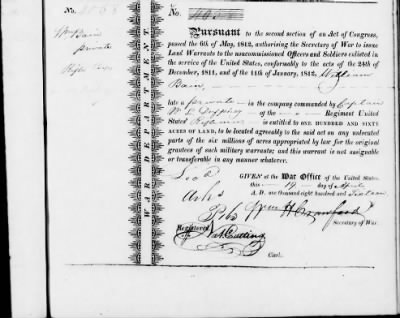 No.
Wm Bain
private
No.
WAR DEPARTMENT
Pursuant to the second section of an Act of Congress,
passed the 6th of May, 1812, authorising the Secretary of War to issue
Land Warrants to the noncommissioned Officers and Soldiers enlisted in
the service of the United States, conformably to the acts of the 24th
of December, 1811, and of the 11th of January, 1812, William
Bain,
late a private in the company commanded by Captain
of the Regiment United
States Riflemen is entitled to ONE HUNDRED AND SIXTY
ACRES OF LAND, to be located agreeably to the said act on any unlocated
part of the six millions of acres appropriated by law for the original
grantees of such military warrants; and this warrant is not assignable
or transferable in any manner whatever.
GIVEN at the War Office of the United States
this 19 day of April
A. D. one thousand eight hundred and sixteen
Wm H Crawford
Secretary of War.
Registered
Cutting
Clerk.